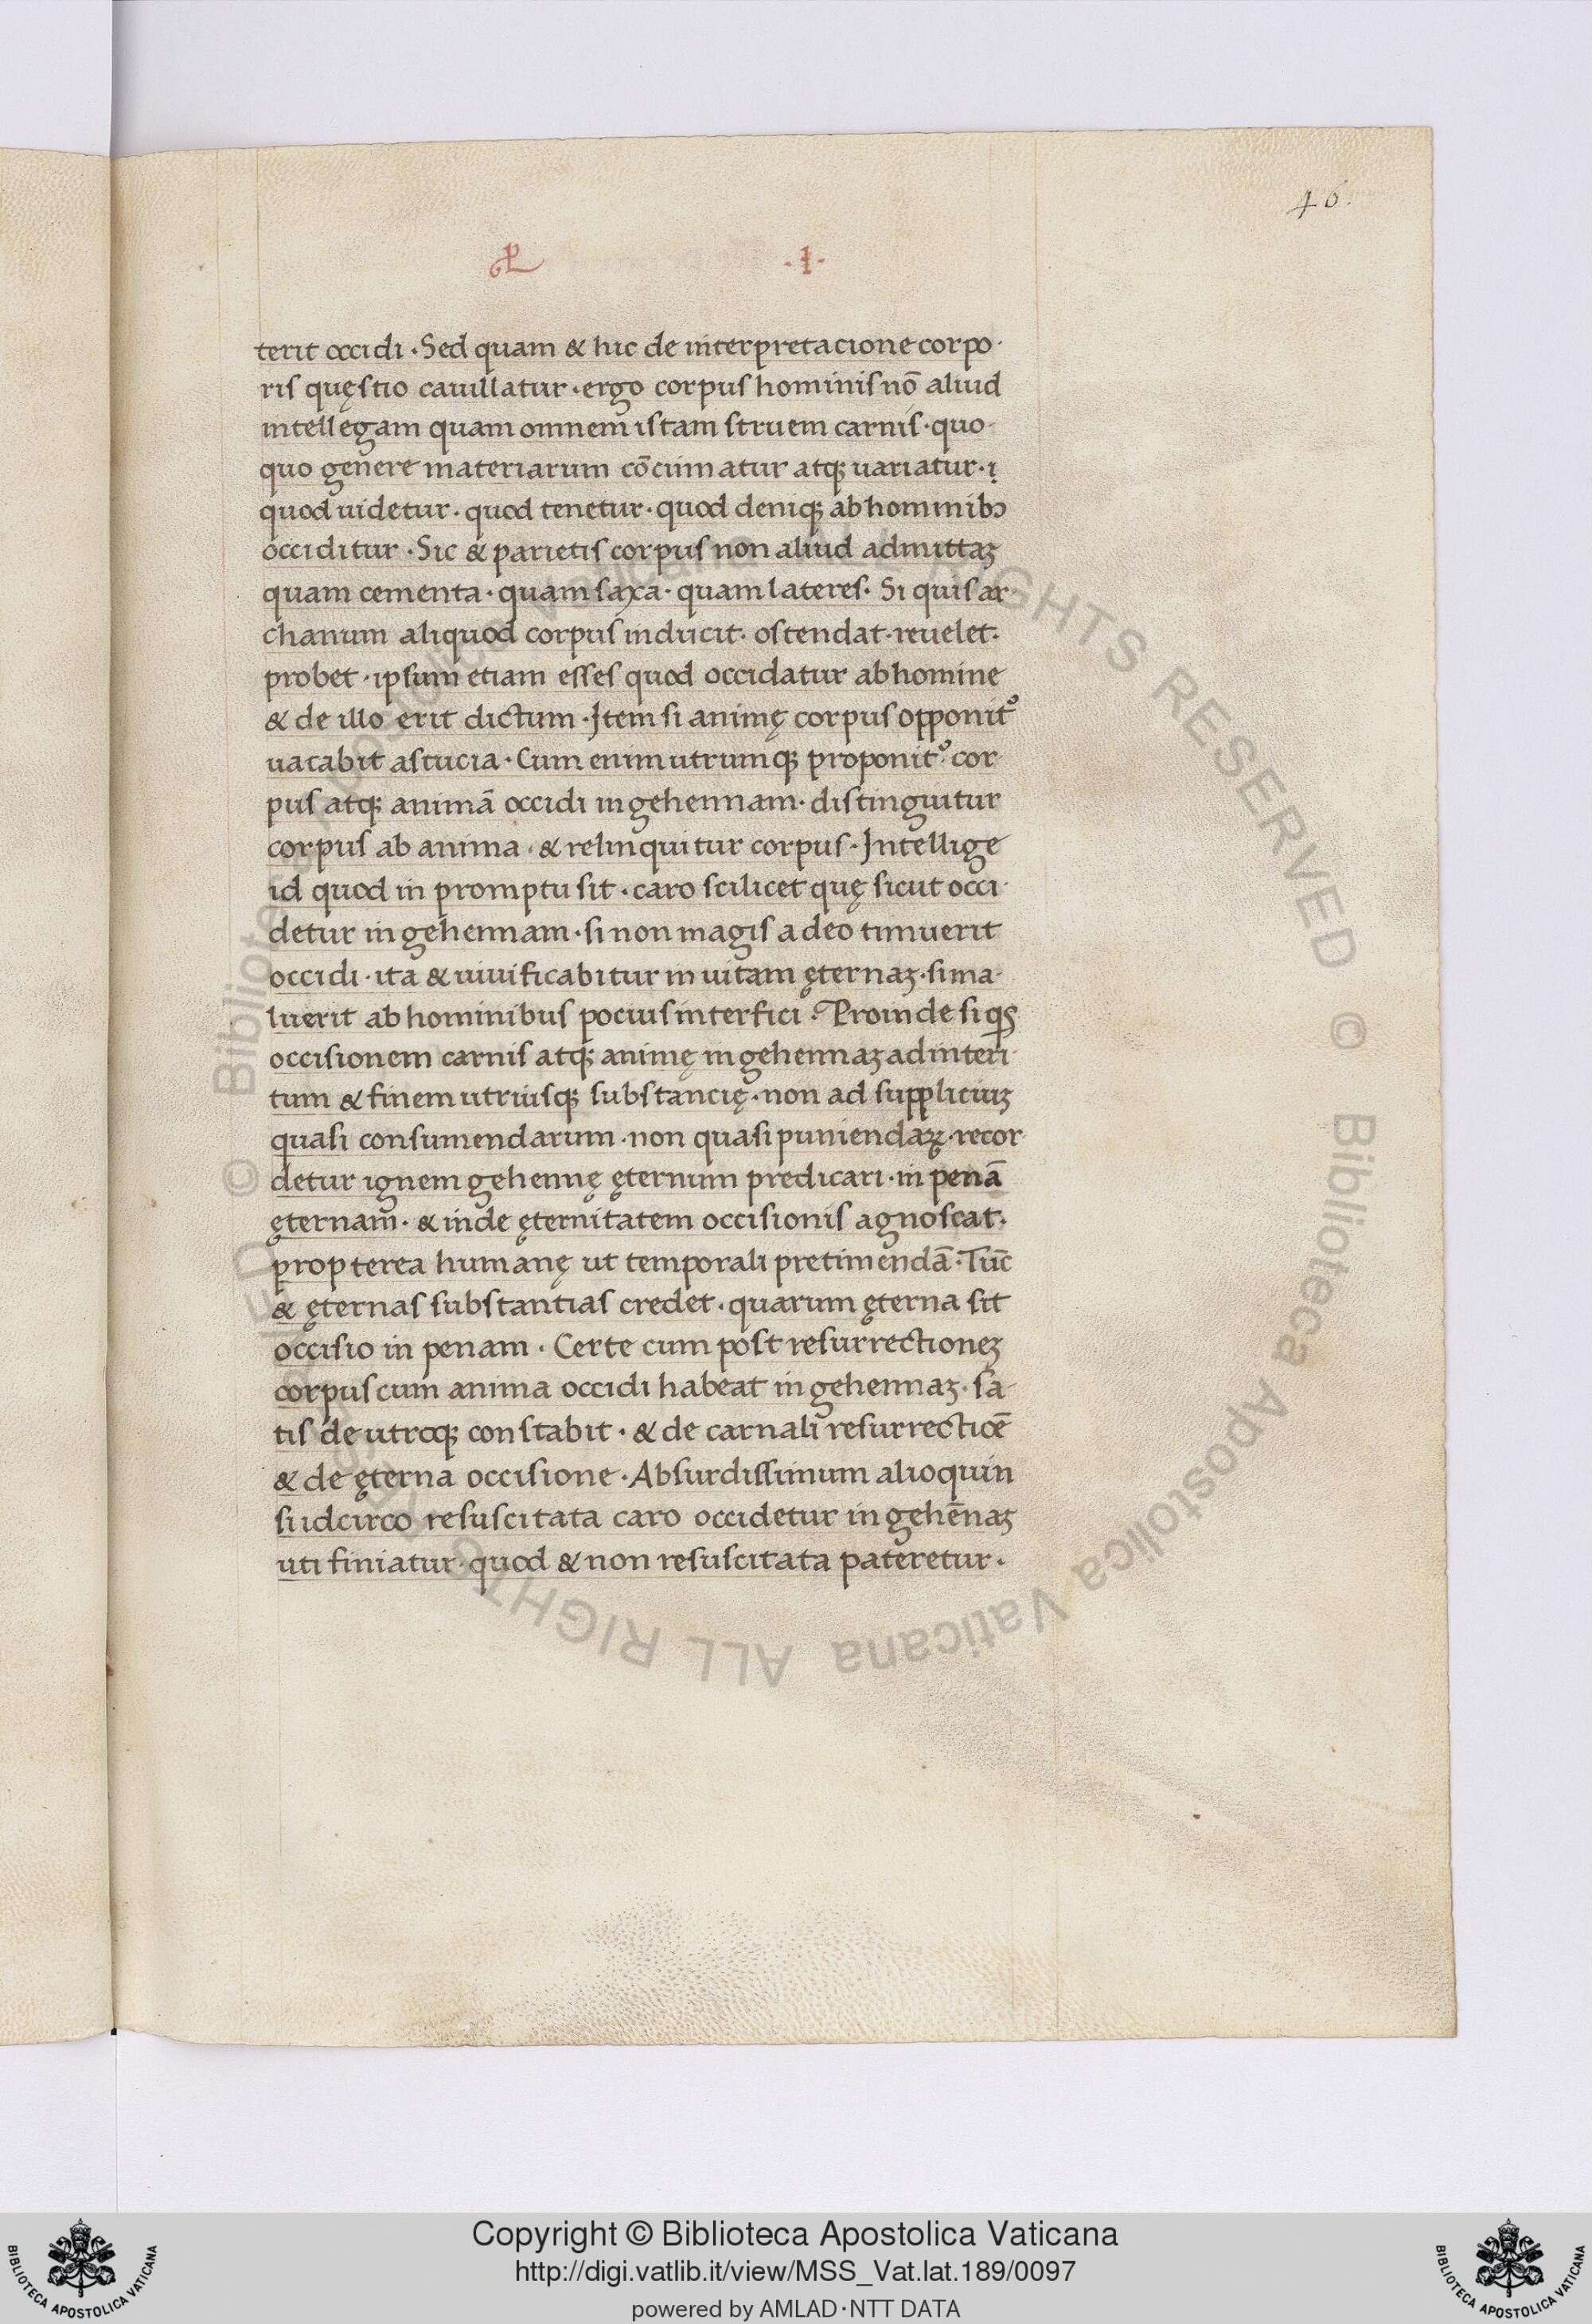 46.
·I·
terit occidi · Sed quam & hic de interpretacione corpo-
ris quęstio cauillatur · ergo corpus hominis nō aliud
intellegam quam omnem istam struem carnis · quo-
quo genere materiarum cōcinnatur atqꝫ uariatur ·
quod uidetur · quod tenetur · quod deniqꝫ ab hominibꝰ
occiditur · Sic & parietis corpus non aliud admittaꝫ
quam cementa · quam saxa · quam lateres · Si quis ar-
chanum aliquod corpus inducit · ostendat · reuelet ·
probet · ipsum etiam esses quod occidatur ab homine
& de illo erit dictum · Item si animę corpus opponit᷒
uacabit astucia · Cum enim utrumqꝫ proponit᷒ · cor-
pus atqꝫ animā occidi in gehennam · distinguitur
corpus ab anima · & relinquitur corpus · Intellige
id quod in promptu sit · caro scilicet quę sicut occi-
detur in gehennam · si non magis a deo timuerit
occidi · ita & uiuificabitur in uitam ęternaꝫ · si ma-
luerit ab hominibus pocius interfici · Proinde si qͥs
occisionem carnis atqꝫ animę in gehennaꝫ ad interi-
tum & finem utriusqꝫ substancię · non ad suppliciuꝫ
quasi consumendarum · non quasi puniendaꝝ · recor-
detur ignem gehennę ęternum predicari · in penā
ęternam · & inde ęternitatem occisionis agnoscat ·
propterea humanę ut temporali pretimendā · Tūc
& ęternas substantias credet · quarum ęterna sit
occisio in penam · Certe cum post resurrectioneꝫ
corpus cum anima occidi habeat in gehennaꝫ · sa-
tis de utroqꝫ constabit · & de carnali resurrectiōē
& de ęterna occisione · Absurdissimum alioquin
si idcirco resuscitata caro occidetur in gehēnaꝫ
uti finiatur · quod & non resuscitata pateretur ·
© Biblioteca Apostolica Vaticana ALL RIGHTS RESERVED © Biblioteca Apostolica Vaticana ALL RIGHTS RESERVED
Copyright © Biblioteca Apostolica Vaticana
http://digi.vatlib.it/view/MSS_Vat.lat.189/0097
powered by AMLAD·NTT DATA
BIBLIOTECA APOSTOLICA VATICANA
BIBLIOTECA APOSTOLICA VATICANA